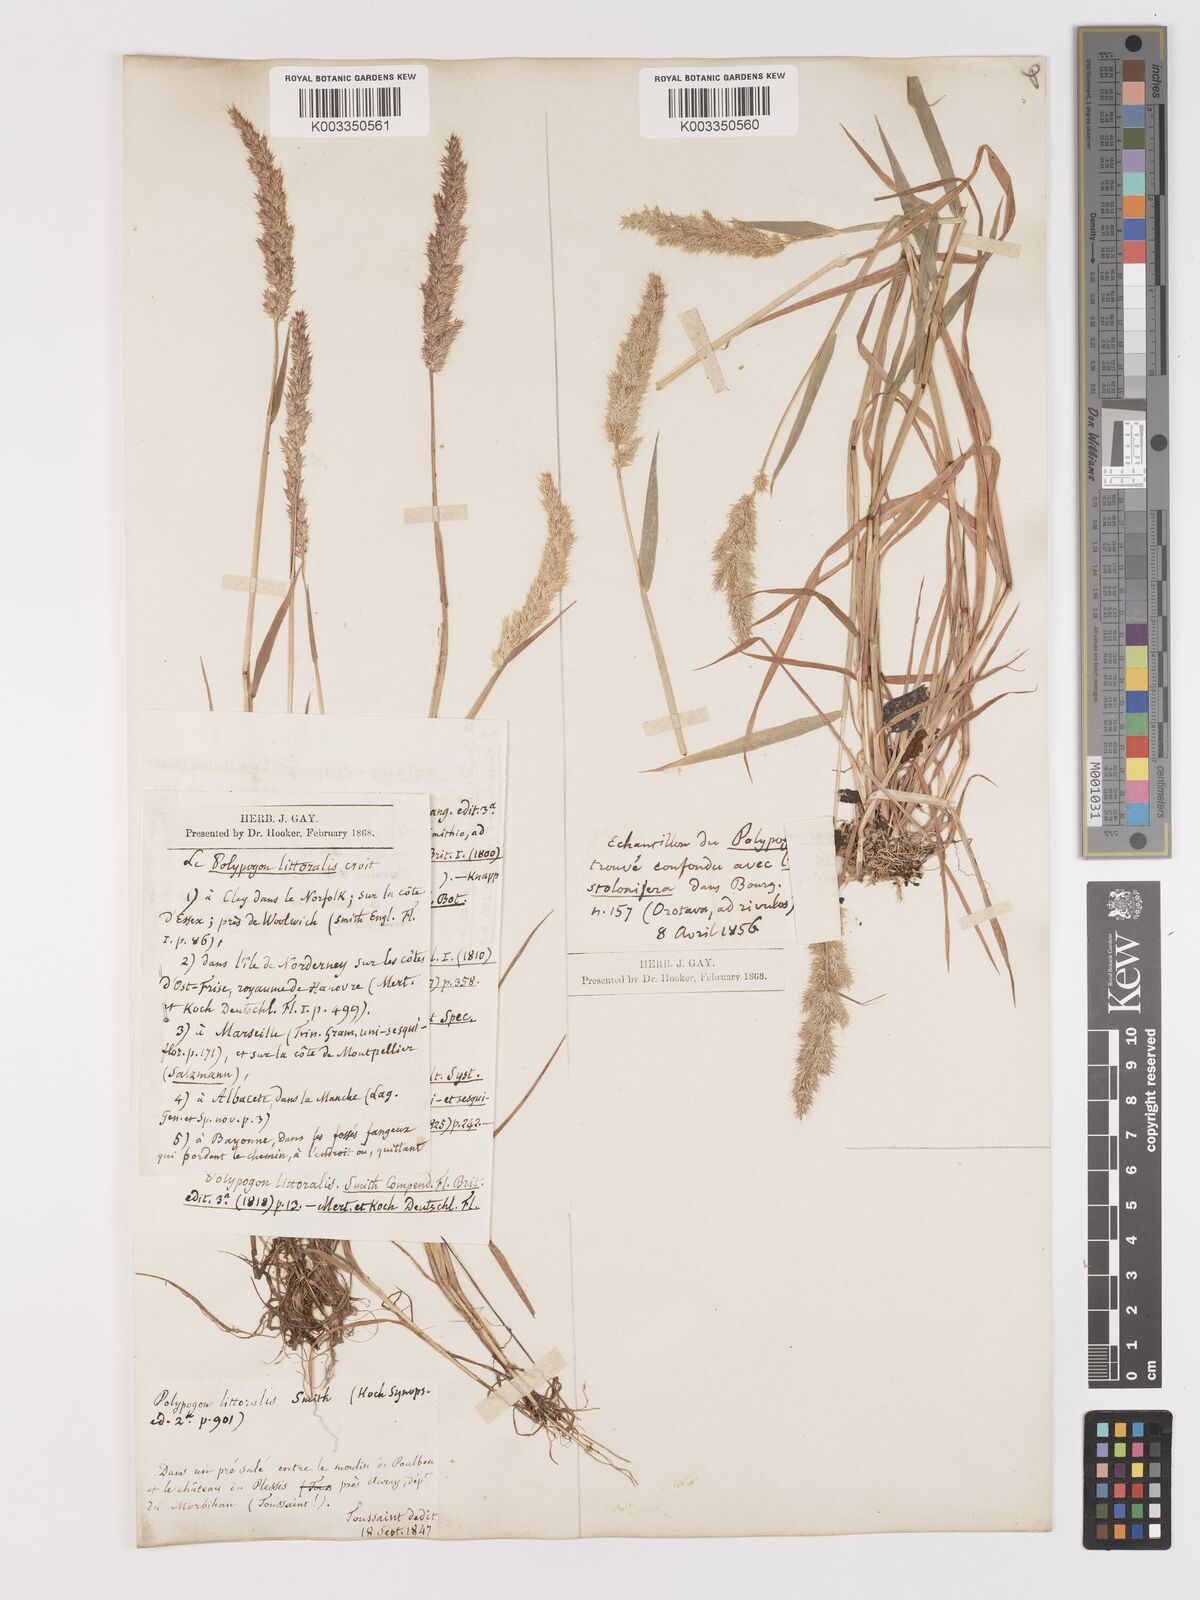 ROYAL BOTANIC GARDENS KEW
K003350561
ROYAL BOTANIC GARDENS KEW
K003350560
HERB. J. GAY.
Presented by Dr. Hooker, February 1868.
Le Polypogon littoralis croit
1) à Cley dans le Norfolk; sur la côte
d'Essex; près de Woolwich (Smith Engl. Fl.
I. p. 86),
2) dans l'île de Norderney sur les côtes
d'Ost-Frise, royaume de Hanovre (Mert.
et Koch Deutschl. Fl. I. p. 499).
3) à Marseille (Trin. Gram. uni-sesqui-
flor. p. 171), et sur la côte de Montpellier
(Salzmann),
4) à Albacete, dans la Manche (Lag.
Gen. et Sp. nov. p. 3)
5) à Bayonne, dans les fossés fangeux
qui bordent le chemin, à l'endroit où, quittant
ang. edit. 3a
mithio, ad
Brit. I. (1800)
). — Knapp
. Bot.
l. I. (1810)
7) p. 358.
t Spec.
lt. Syst.
i- et sesqui-
825) p. 242. —
Polypogon littoralis. Smith Compend. Fl. Brit.
edit. 3a (1818) p. 13. — Mert. et Koch Deutschl. Fl.
Echantillon du Polypog
trouvé confondu avec l
stolonifera dans Bourg.
n. 157 (Orotava, ad rivulos)
8 Avril 1856
HERB. J. GAY.
Presented by Dr. Hooker, February 1868.
Polypogon littoralis Smith (Koch Synops.
ed. 2a p. 901)
Dans un pré salé entre le moulin de Poulben
et le château du Plessis près Auray, dépt.
du Morbihan (Toussaint!).
Toussaint dedit
18 Sept. 1847
inches
centimetres
Density
Don Williams
M001031
Royal Botanic Gardens
Kew
0 1 2 3 4 5 6 7 8 9 10
cm